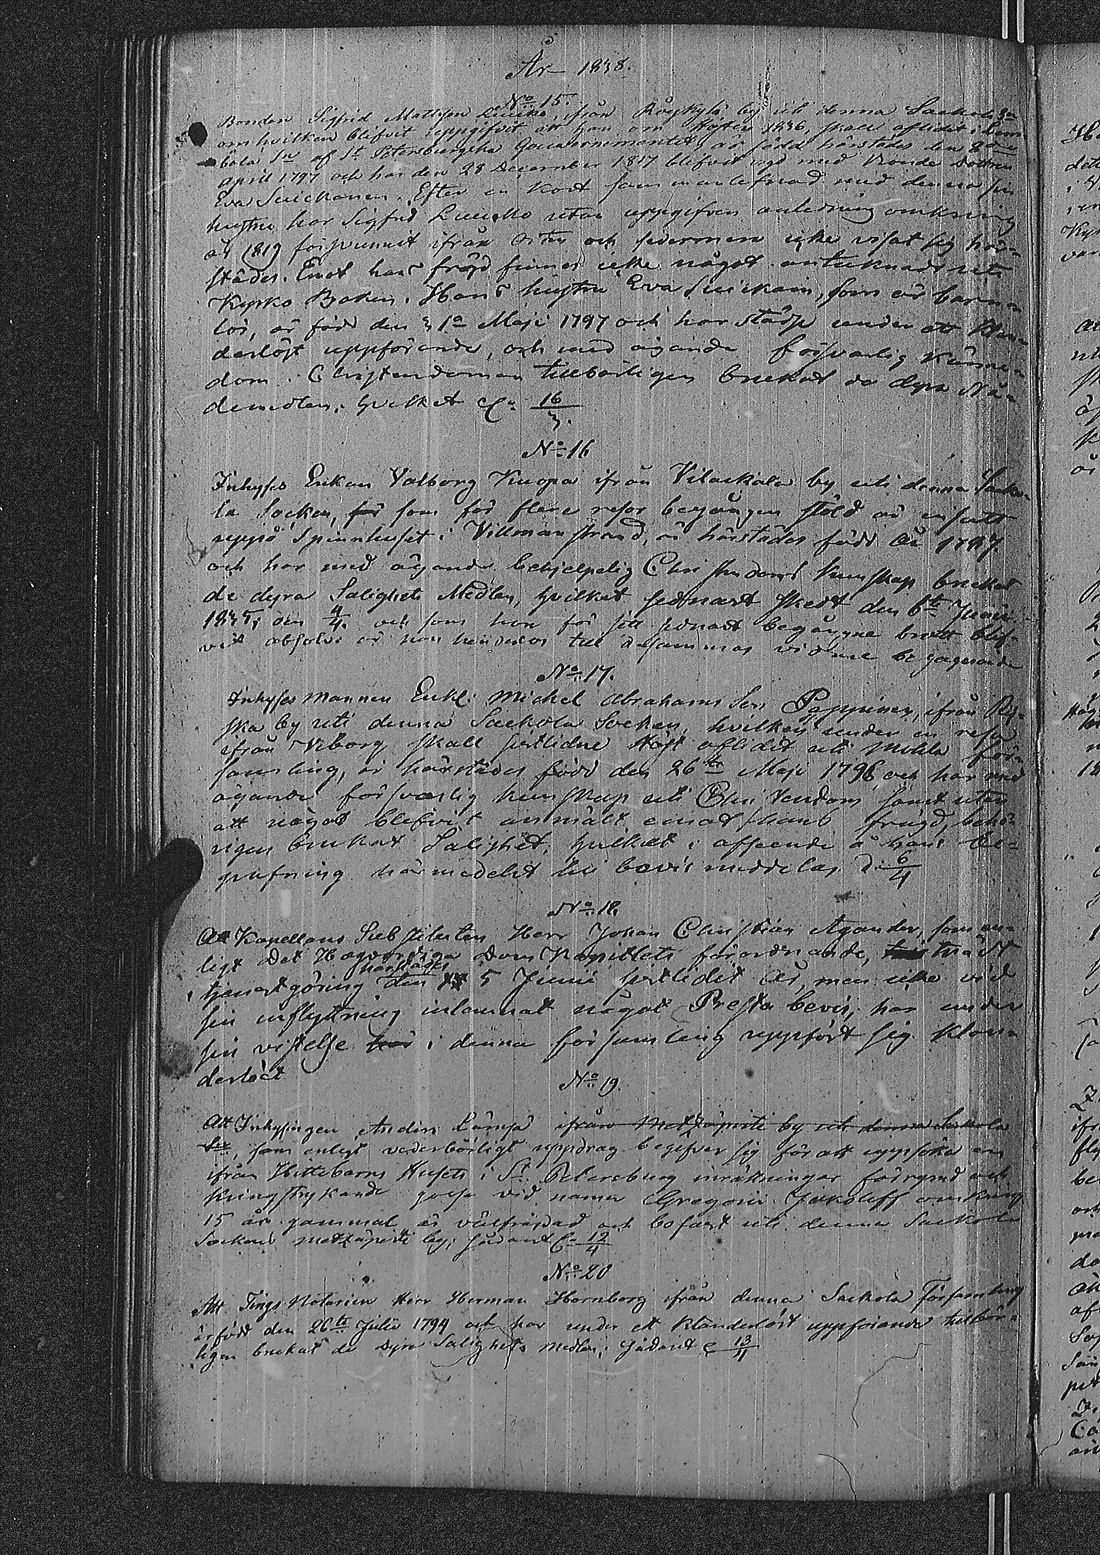 År 1838.
No 15.
Bonden Sigfrid Mattsson ifrån by uti denna Sackola
om hvilken blifvit uppgifvet att han om Hösten 1836, skall aflidit i
af St Petersburgska Gouvernementet, är född härstädes den
April 1797 och har den 28 December 1817 blifvit vigd med Bonde Dottren
Eva Suickanen. Efter en kort sammanlefnad med denna sin
hustru har Sigfrid utan uppgifven anledning omkring
år 1819 försvunnit ifrån Orten och sedermera icke visat sig här-
städes. Emot hans frägd finnes icke något antecknadt uti
Kyrko Boken. Hans hustru Eva Suickain, som är barn-
lös, är född den 31 Maji 1797 och har städse under ett klan-
derlöst uppförande, och med ägande försvarlig känne-
dom i Christendomen tillbörligen brukat de dyra Nå-
demedlen. hvilket C. 16/3.
No 16
Inhyses Enkan Valborg Kuopa ifrån Vilackala by uti denna Sacko-
la Socken, för som för flere resor begången stöld är insatt
uppå Spinnhuset i Villmanstrand, är härstädes född År 1787.
och har med ägande behjelpelig Christendoms kunskap brukat
de dyra Salighets Medlen, hvilket sednast skedt den 6te Junii
1835, den 4/4. och som hon för sitt sednast begångne brott blif-
vit absolv. är hon hinderlös till desammas vidare begagnande
No 17.
Inhyses Mannen Enkl. Michel Abrahamsson Peppinen, ifrån
ska by uti denna Sackola Socken, hvilken under en resa
ifrån Viborg skall sistlidne Höst aflidit uti Mohla för-
samling, är härstädes född den 26te Maji 1796 och har med
ägande försvarlig kunskap uti Christendom samt utan
att något blefvit anmält emot hans frägd, behö-
rigen brukat Salighet. hvilket i afseende å hans be-
grafning härmedelst till bevis meddelas D. 6/4
No 18.
Att Kapellans Substituten Herr Johan Christian Agander, som en-
ligt det Högvördiga Dom Kapitlets förordnande, trädt
i tjenstgöring härstädes den 5 Junii sistlidit år, men icke vid
sin inflyttning inlemnat något Presta bevis, har under
sin vistelse här i denna församling uppfört sig klan-
derlöst
No 19.
Att Inhysingen Anders Lämsä ifrån Metzäpirti by uti denna Sackola
som enligt vederbörligt uppdrag begifver sig för att uppsöka en
ifrån Hittebarns Huset i St Petersburg förrymd och
kringstrykande gosse vid namn Gregori Jakoleff omkring
15 år gammal är välfrägdad och bofast uti denna Sackola
Sockens Metzäpirti by; sådant C. 12/4
No 20
Att Tings Notarien Herr Herman Hornborg ifrån denna Sackola Församling
är född den 26te Julii 1794 och har under et klanderlöst uppförande tillbör-
ligen brukat de Dyra Salighets Medlen; sådant C 13/4